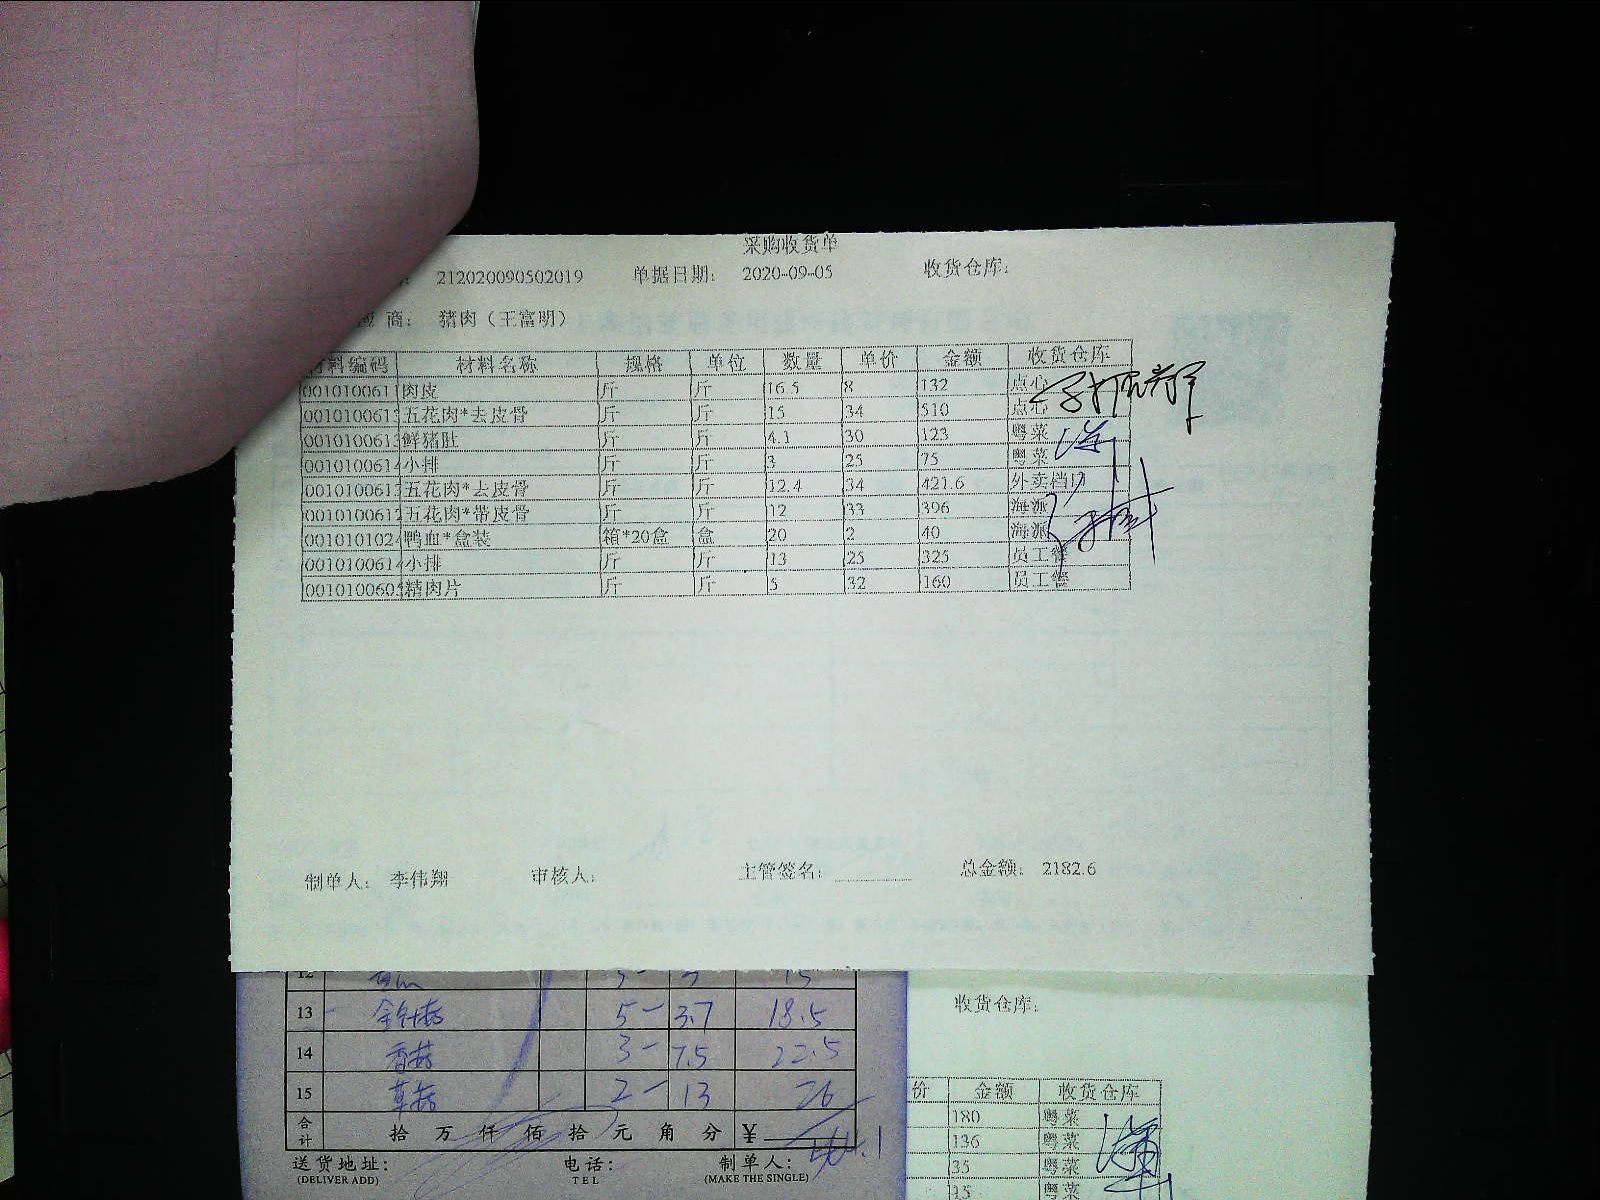 采购收货单
212020090502019 单据日期: 2020-09-05 收货仓库:
商: 猪肉（王富明）
材料编码 材料名称 规格 单位 数量 单价 金额 收货仓库
001010061 肉皮 斤 斤 16.5 8 132 点心
001010061 五花肉*去皮骨 斤 斤 15 34 510 点心
001010061 鲜猪肚 斤 斤 4.1 30 123 粤菜
001010061 小排 斤 斤 3 25 75 粤菜
001010061 五花肉*去皮骨 斤 斤 12.4 34 421.6 外卖档口
001010061 五花肉*带皮骨 斤 斤 12 33 396 海派
001010102 鸭血*盒装 箱*20盒 盒 20 2 40 海派
001010061 小排 斤 斤 13 25 325 员工餐
001010060 精肉片 斤 斤 5 32 160 员工餐
制单人: 李伟翔 审核人: 主管签名: 总金额: 2182.6
12 15
13 金针菇 5- 3.7 18.5
14 香菇 3- 7.5 22.5
15 草菇 2- 13 26
合计 拾 万 仟 佰 拾 元 角 分 ¥
送货地址: 电话: 制单人:
(DELIVER ADD) TEL (MAKE THE SINGLE)
收货仓库:
价 金额 收货仓库
180 粤菜
136 粤菜
35 粤菜
15 粤菜